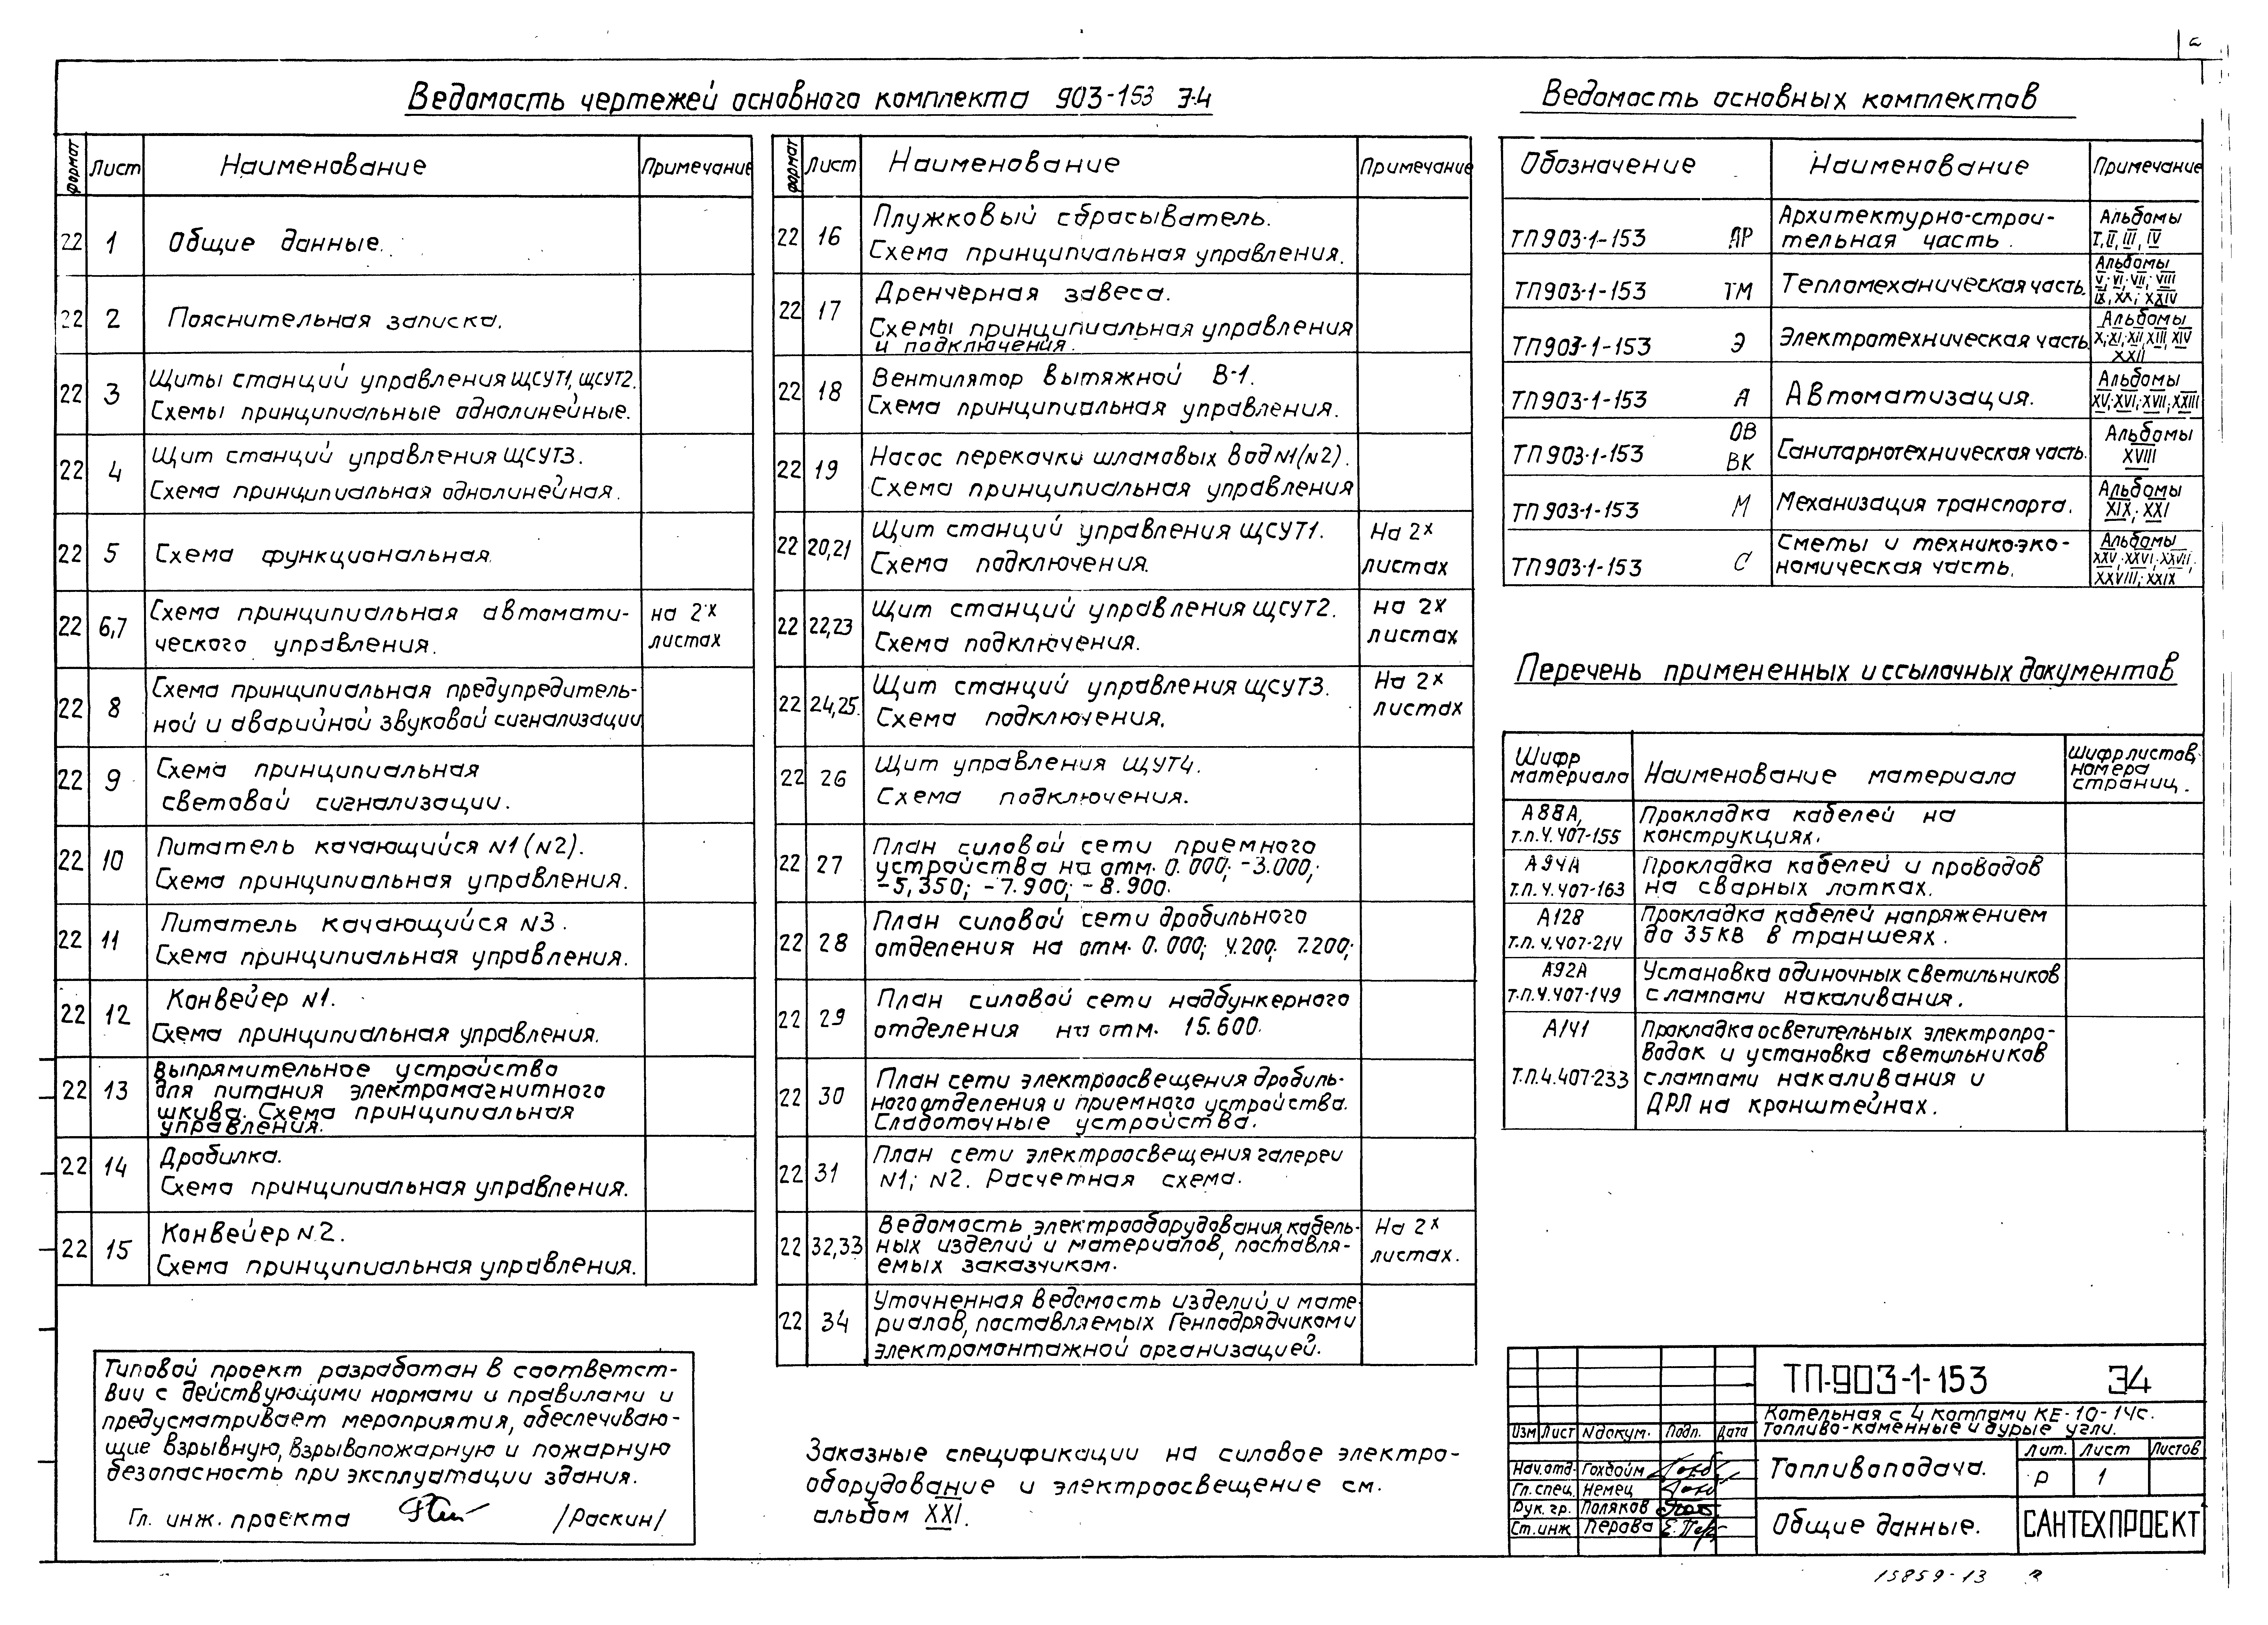 Ведомость чертежей основного комплекта 903-153 Э-4
формат Лист Наименование Примечание
22 1 Общие данные.
22 2 Пояснительная записка.
22 3 Щиты станций управления ЩСУТ1, ЩСУТ2.
Схемы принципиальные однолинейные.
22 4 Щит станций управления ЩСУТ3.
Схема принципиальная однолинейная.
22 5 Схема функциональная.
22 6,7 Схема принципиальная автомати- на 2х
ческого управления. листах
22 8 Схема принципиальная предупредитель-
ной и аварийной звуковой сигнализации
22 9 Схема принципиальная
световой сигнализации.
22 10 Питатель качающийся N1 (N2).
Схема принципиальная управления.
22 11 Питатель качающийся N3.
Схема принципиальная управления.
22 12 Конвейер N1.
Схема принципиальная управления.
22 13 Выпрямительное устройство
для питания электромагнитного
шкива. Схема принципиальная
управления.
22 14 Дробилка.
Схема принципиальная управления.
22 15 Конвейер N2.
Схема принципиальная управления.
формат Лист Наименование Примечание
22 16 Плужковый сбрасыватель.
Схема принципиальная управления.
22 17 Дренчерная завеса.
Схемы принципиальная управления
и подключения.
22 18 Вентилятор вытяжной В-1.
Схема принципиальная управления.
22 19 Насос перекачки шламовых вод N1(N2).
Схема принципиальная управления
22 20,21 Щит станций управления ЩСУТ1. На 2х
Схема подключения. листах
22 22,23 Щит станций управления ЩСУТ2. на 2х
Схема подключения. листах
22 24,25. Щит станций управления ЩСУТ3. На 2х
Схема подключения. листах
22 26 Щит управления ЩУТ4.
Схема подключения.
22 27 План силовой сети приемного
устройства на отм. 0.000; -3.000;
-5,350; -7.900; -8.900.
22 28 План силовой сети дробильного
отделения на отм. 0.000; 4.200; 7.200;
22 29 План силовой сети надбункерного
отделения на отм. 15.600.
22 30 План сети электроосвещения дробиль-
ного отделения и приемного устройства.
Слаботочные устройства.
22 31 План сети электроосвещения галереи
N1; N2. Расчетная схема.
22 32,33 Ведомость электрооборудования, кабель- На 2х
ных изделий и материалов, поставля- листах.
емых заказчиком.
22 34 Уточненная ведомость изделий и мате-
риалов, поставляемых Генподрядчиком и
электромонтажной организацией.
Ведомость основных комплектов
Обозначение Наименование Примечание
ТП903-1-153 АР Архитектурно-строи- Альбомы
тельная часть. I, II, III, IV
ТП903-1-153 ТМ Тепломеханическая часть. Альбомы
V; VI; VII; VIII
IX, XX; XXIV
ТП903-1-153 Э Электротехническая часть Альбомы
X; XI, XII, XIII, XIV
XXII
ТП903-1-153 А Автоматизация. Альбомы
XV; XVI; XVII, XXIII
ТП903-1-153 ОВ ВК Санитарнотехническая часть. Альбомы
XVIII
ТП903-1-153 М Механизация транспорта. Альбомы
XIX; XXI
ТП903-1-153 С Сметы и технико-эко- Альбомы
номическая часть. XXV; XXVI; XXVII;
XXVIII; XXIX
Перечень примененных и ссылочных документов
Шифр материала Наименование материала Шифр листов, номера страниц.
А88А, Прокладка кабелей на
т.п.4.407-155 конструкциях.
А94А Прокладка кабелей и проводов
т.п.4.407-163 на сварных лотках.
А128 Прокладка кабелей напряжением
т.п.4.407-214 до 35кв в траншеях.
А92А Установка одиночных светильников
т.п.4.407-149 с лампами накаливания.
А141 Прокладка осветительных электропро-
водок и установка светильников
Т.П.4.407-233 с лампами накаливания и
ДРЛ на кронштейнах.
Типовой проект разработан в соответст-
вии с действующими нормами и правилами и
предусматривает мероприятия, обеспечиваю-
щие взрывную, взрывопожарную и пожарную
безопасность при эксплуатации здания.
Гл. инж. проекта /Раскин/
Заказные спецификации на силовое электро-
оборудование и электроосвещение см.
альбом XXI.
ТП-903-1-153 Э4
Котельная с 4 котлами КЕ-10-14с.
Топливо-каменные и бурые угли.
Изм Лист Nдокум. Подп. Дата
Нач.отд. Гохбойм
Гл.спец. Немец
Рук. гр. Поляков
Ст.инж Перова
Топливоподача.
Лит. Лист Листов
Р 1
Общие данные.
САНТЕХПРОЕКТ
15859-13